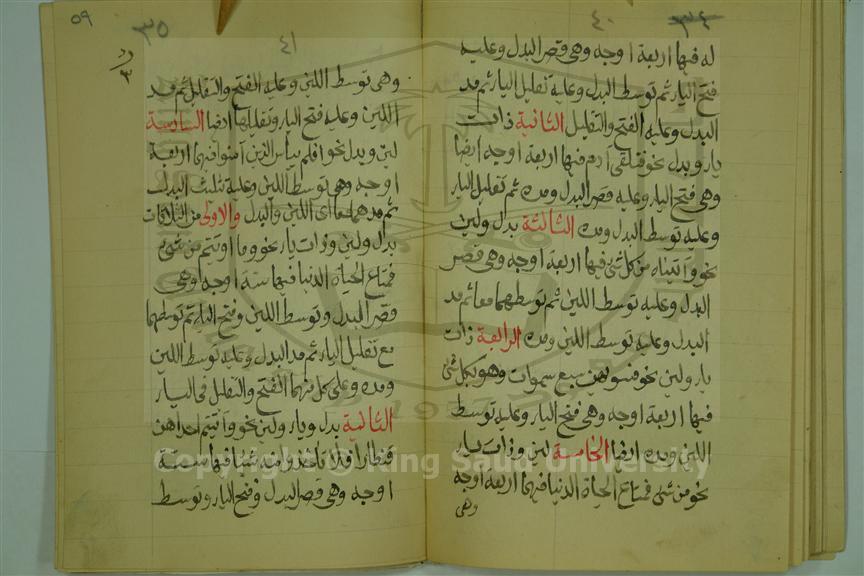 ٤٠
٣٤
له فيها اربعة اوجه وهي قصر البدل وعليه
فتح اليا ثم توسط البدل وعليه تقليل اليا ثم مد
البدل وعليه الفتح والتقليل الثانية ذات
يا وبدل نحو فتلقى آدم ففيها اربعة اوجه ايضا
وهي فتح اليا وعليه قصر البدل ومده ثم تقليل اليا
وعليه توسط البدل ومده الثالثة بدل ولين
نحو وآتيناه من كل شي ففيها اربعة اوجه وهي قصر
البدل وعليه توسط اللين ثم توسطهما معا ثم مد
البدل وعليه توسط اللين ومده الرابعة ذات
يا ولين نحو فسويهن سبع سموات وهو بكل شي
فيها اربعة اوجه وهي فتح اليا وعليه توسط
اللين ومده ايضا الخامسة لين وذات يا
نحو من شي فمتاع الحياة الدنيا فيها اربعة اوجه
وهي
٥٩
٣٥
٤١
وهي توسط اللين وعليه الفتح والتقليل ثم مد
اللين وعليه فتح اليا وتقليلها ايضا السادسة
لين وبدل نحو افلم ييأس الذين آمنوا فيها اربعة
اوجه وهي توسط اللين وعليه تثليث البدل
ثم مدهما معا اى اللين والبدل والاولى من الثلاثيات
بدل ولين وذات يا نحو وما اوتيتم من شي
فمتاع الحياة الدنيا فيها ستة اوجه وهي
قصر البدل وتوسط اللين وفتح اليا ثم توسطهما
مع تقليل اليا ثم مد البدل وعليه توسط اللين
ومده وعلى كل منهما الفتح والتقليل في اليا
الثانية بدل ويا ولين نحو وآتيتم احداهن
قنطارا فلا تأخذوا منه شيا فيها ستة
اوجه وهي قصر البدل وفتح اليا وتوسط
Copyright © King Saud University
1957